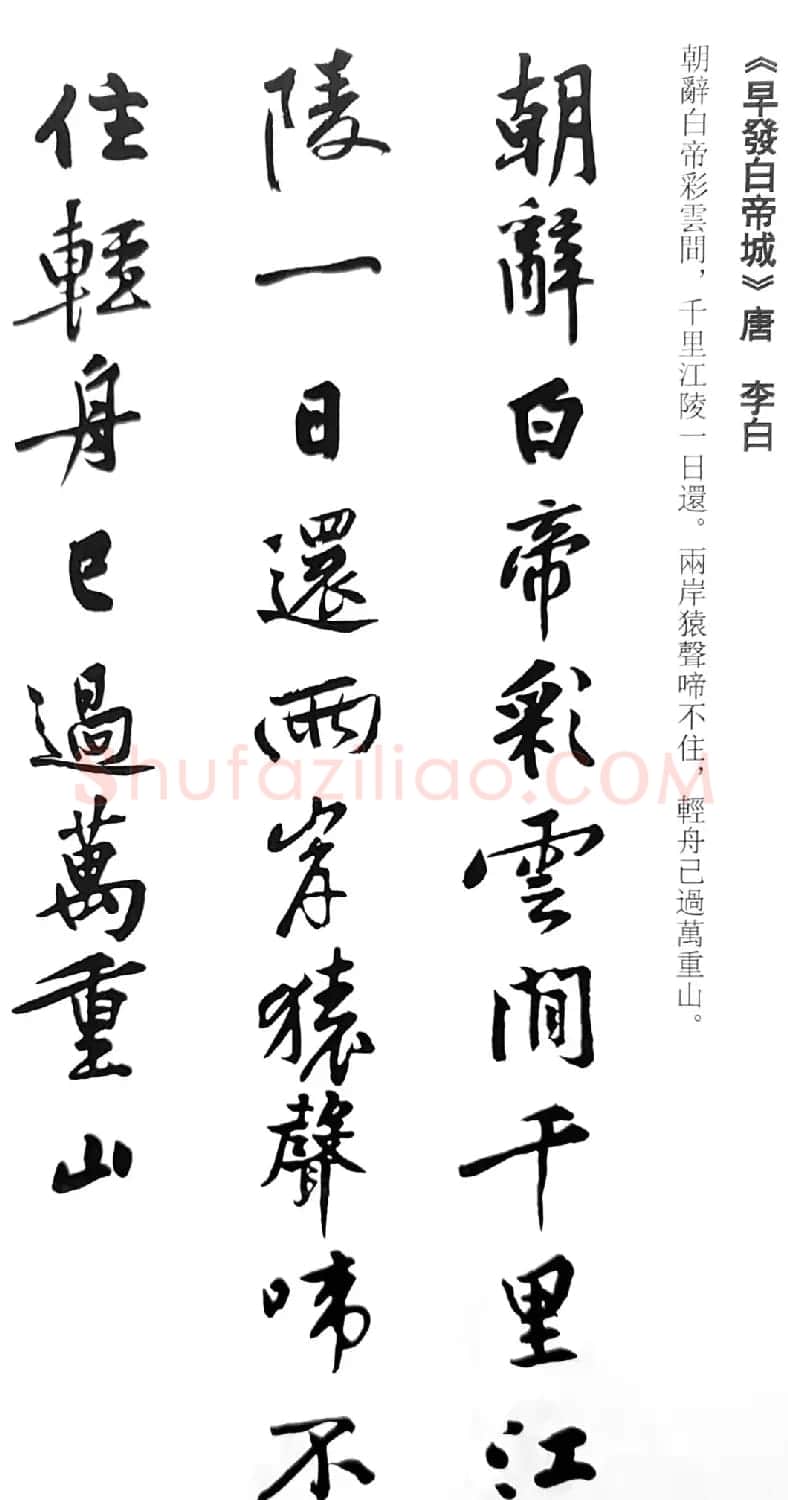 《早發白帝城》唐　李白
朝辭白帝彩雲間，千里江陵一日還。兩岸猿聲啼不住，輕舟已過萬重山。
朝辭白帝彩雲間千里江
陵一日還兩岸猿聲啼不
住輕舟已過萬重山
Shufaziliao.COM